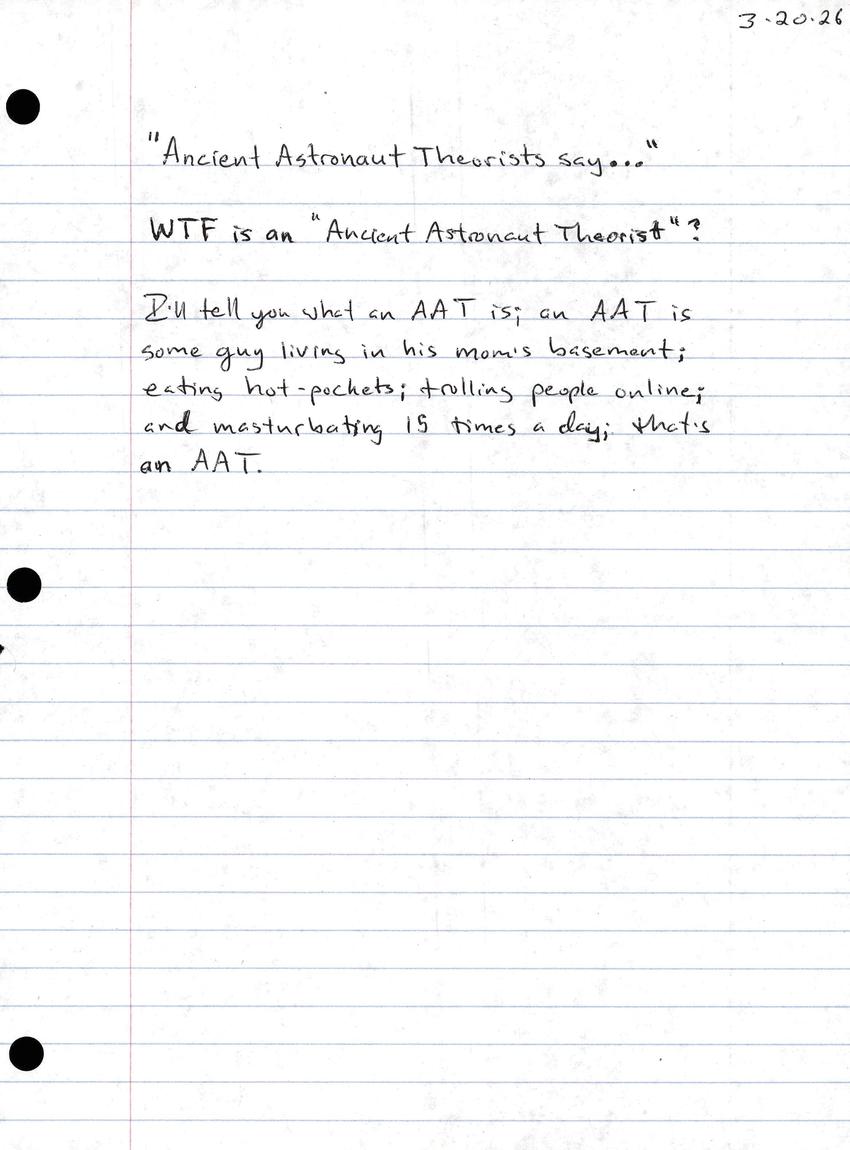 3-20-26
"Ancient Astronaut Theorists say..."
WTF is an "Ancient Astronaut Theorist"?
I'll tell you what an AAT is; an AAT is
some guy living in his mom's basement;
eating hot-pockets; trolling people online;
and masturbating 15 times a day; that's
an AAT.